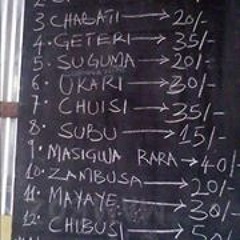 3 CHABATI → 20/-
4. GETERI → 35/-
5. SUGUMA → 20/-
6 OKARI → 30/-
7. CHUISI → 35/-
8. SUBU → 15/-
9. MASIGWA RARA → 40/-
10. ZAMBUSA → 20/-
11. MAYAYE → 30/-
12. CHIBUSI → 50/-